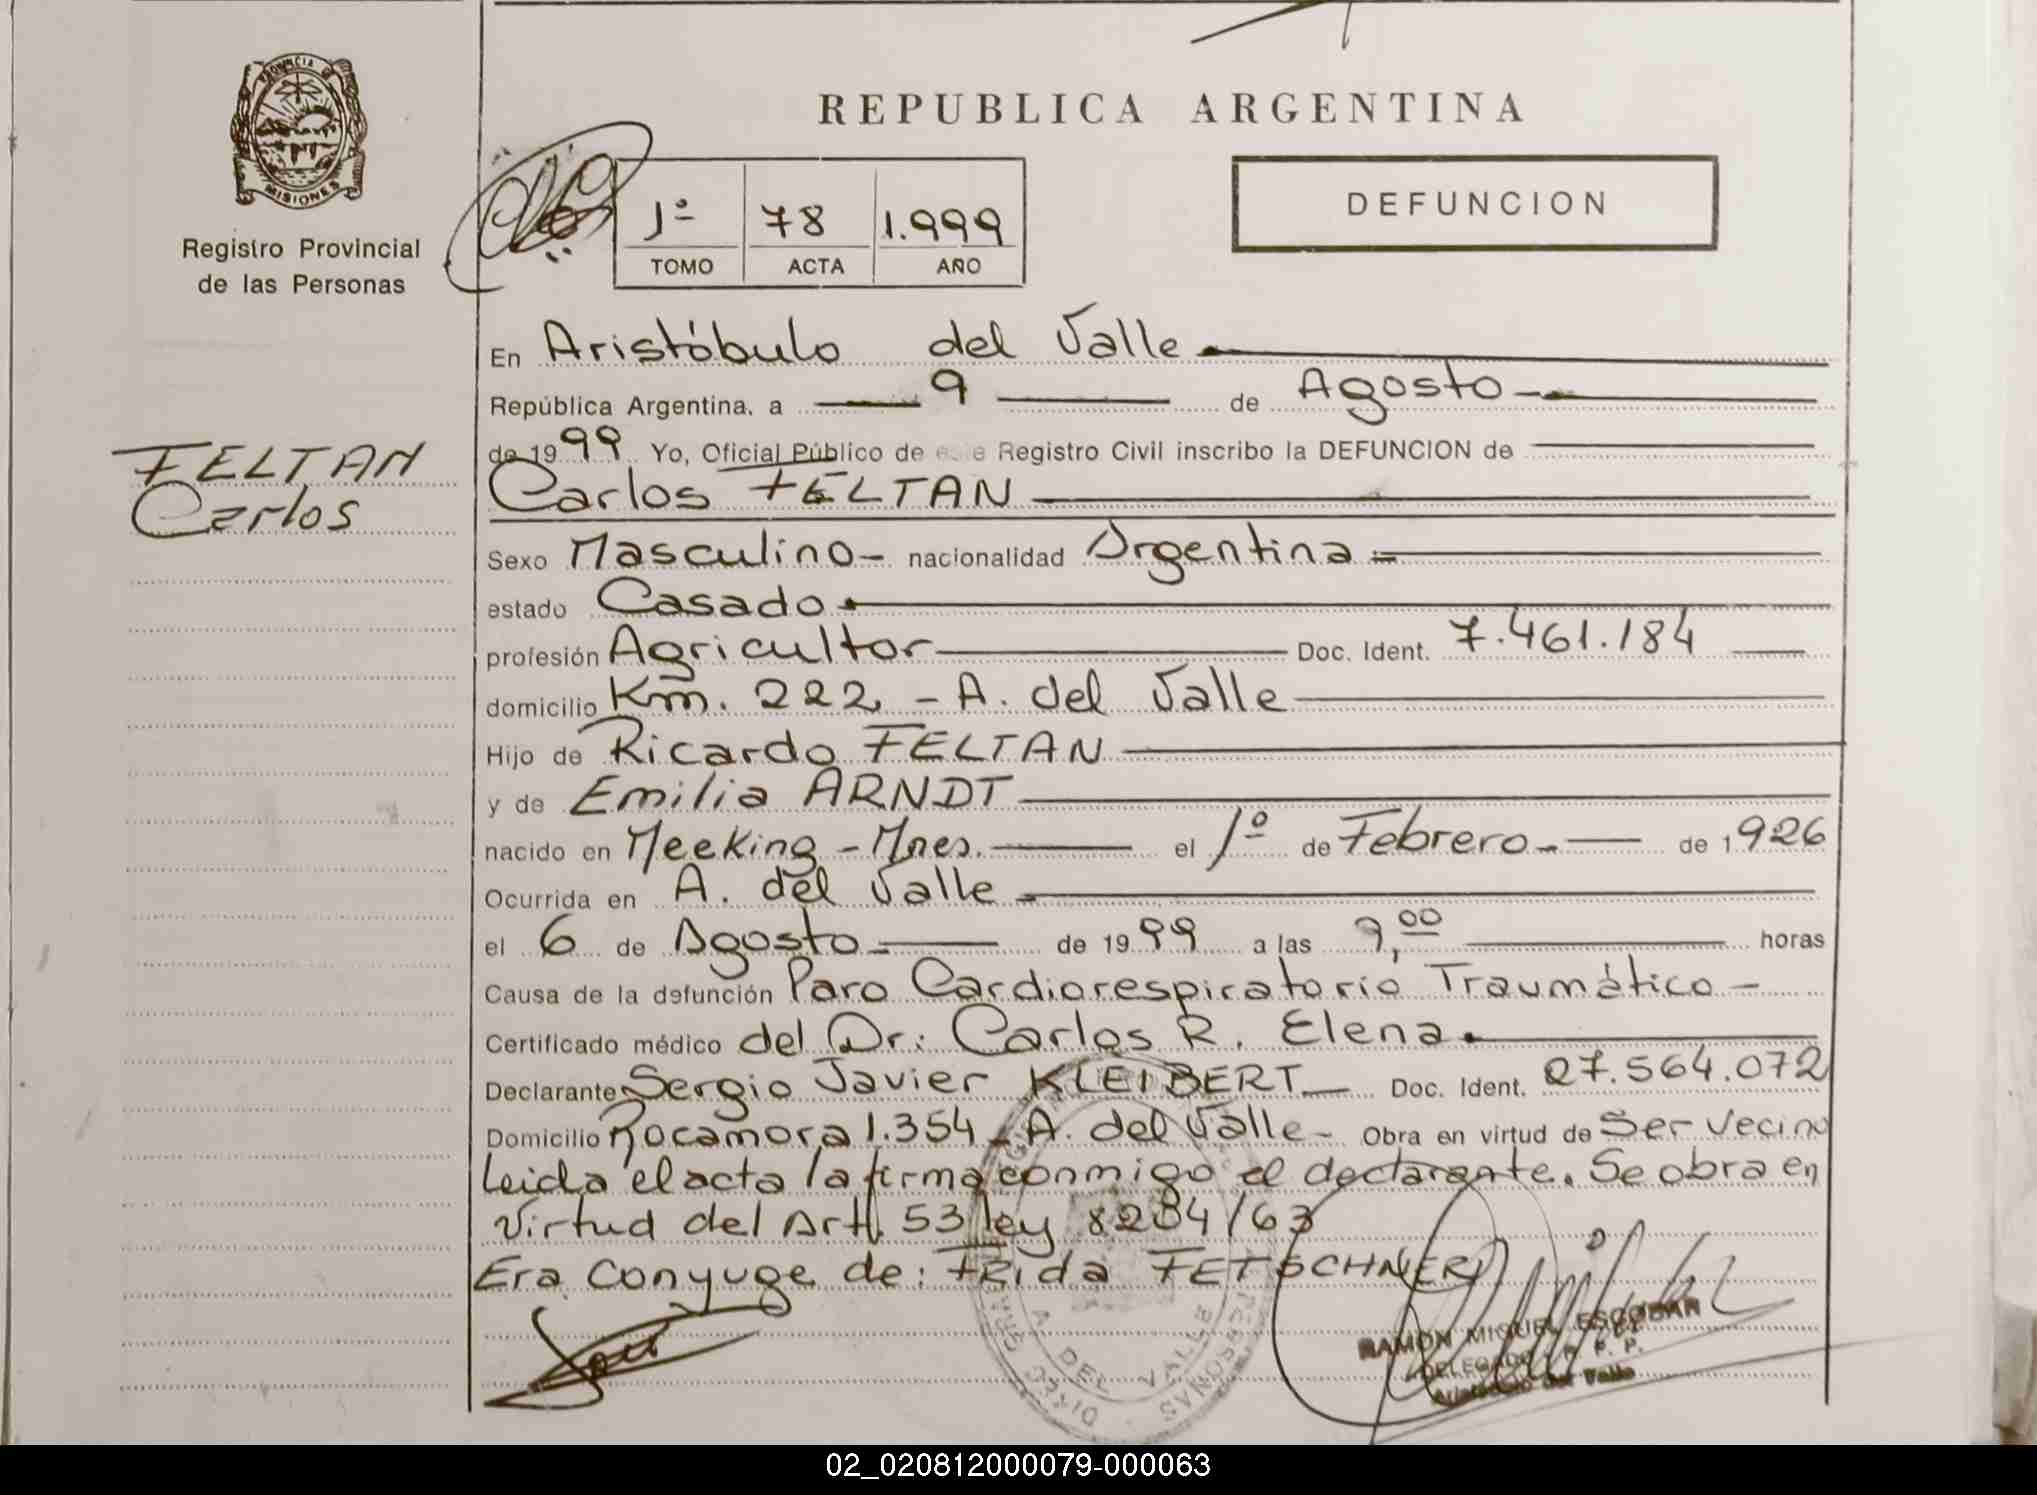 PROVINCIA DE
MISIONES
Registro Provincial
de las Personas
REPUBLICA ARGENTINA
DEFUNCION
1º 78 1.999
TOMO ACTA AÑO
En Aristóbulo del Valle
República Argentina, a 9 de Agosto
de 1999 Yo, Oficial Público de este Registro Civil inscribo la DEFUNCION de
Carlos FELTAN
FELTAN
Carlos
Sexo Masculino nacionalidad Argentina
estado Casado
profesión Agricultor Doc. Ident. 7.461.184
domicilio Km. 222 - A. del Valle
Hijo de Ricardo FELTAN
y de Emilia ARNDT
nacido en Meeking - Mnes. el 1º de Febrero de 1926
Ocurrida en A. del Valle
el 6 de Agosto de 1999 a las 9,00 horas
Causa de la defunción Paro Cardiorespiratorio Traumático
Certificado médico del Dr: Carlos R. Elena
Declarante Sergio Javier KLEIBERT Doc. Ident. 27.564.072
Domicilio Rocamora 1.354 - A. del Valle - Obra en virtud de Ser Vecino
Leida el acta la firma conmigo el declarante. Se obra en
Virtud del Art. 53 ley 8204/63
Era Conyuge de: FRida FETSCHNER
RAMON MIGUEL ESCOBAR
DELEGADO R. P. P.
Aristóbulo del Valle
A. DEL VALLE
02_020812000079-000063